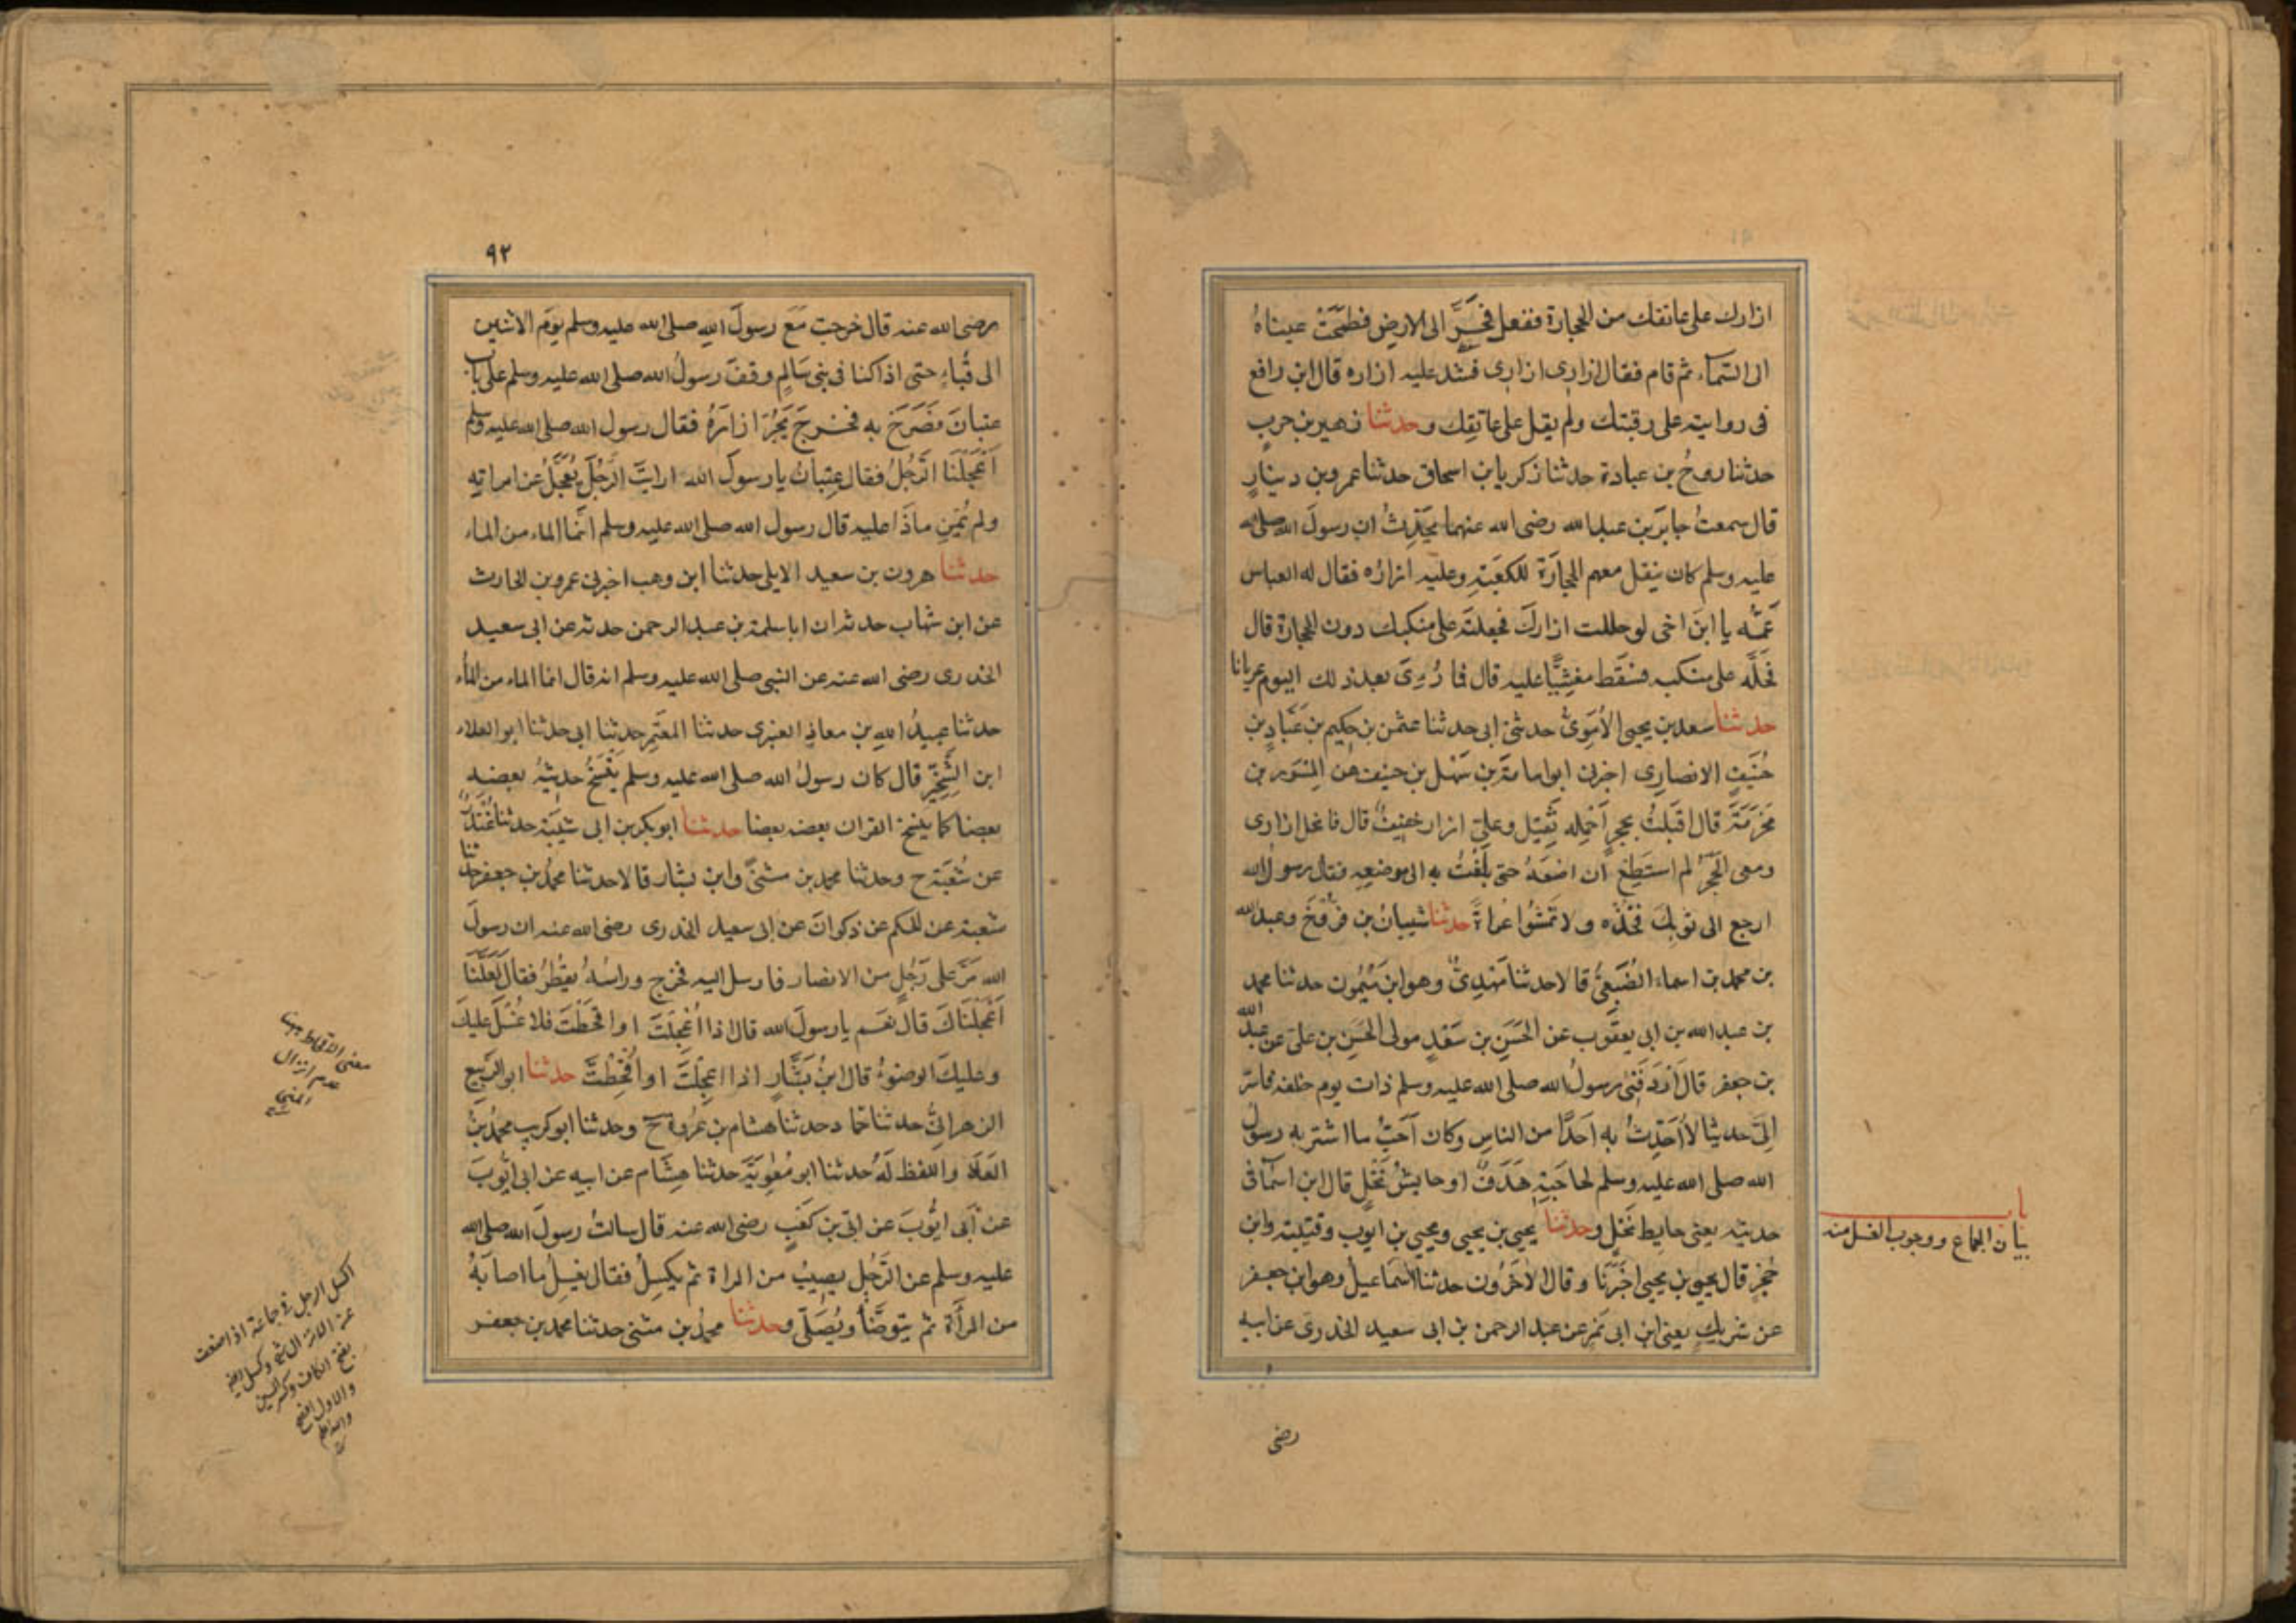 ازارك على عاتقك من الحجارة ففعل فَخَرَّ الى الارض فطَمَحَتْ عيناهُ
الى السّماء ثم قام فقال ازارى ازارى فشد عليه ازاره قال ابن رافع
فى روايته على رقبتك ولم يقل على عاتقك وحدثنا زهير بن حرب
حدثنا روح بن عبادة حدثنا زكريا بن اسحاق حدثنا عمرو بن دينارٍ
قال سمعتُ جابرَ بن عبد الله رضى الله عنهما يحَدِّثُ ان رسولَ الله صلى الله
عليه وسلم كان ينقل معهم الحِجارَة للكعَبَةِ وعليه ازارُه فقال له العباس
عَمُّه يا ابنَ اخى لو حللت ازارَك فجعلته على منكبك دون الحجارة قال
فَحَلَّه على منكبه فسَقَط مغشِيًّا عليه قال فما رُؤِىَ بعد ذلك اليوم عريانا
حدثنا سعد بن يحيى الأُمَوِىُّ حدثنى ابى حدثنا عثمن بن حكيم بن عَبَّادِ بن
حُنَيفٍ الانصارى اخبرنى ابو امامة بن سَهْل بن حنيف عن المِسْوَر بن
مَخْرَمَةَ قال اقبَلتُ بحجرٍ اَحْمِله ثَقِيل وعلىّ ازار خفيفٌ قال فانحل ازارى
ومعى الحَجَرُ لم استَطِعْ ان اضعَهُ حتى بلَغْتُ به الى موضعِه فقال رسولُ الله
ارجع الى ثوبِكَ فخُذْه ولا تَمشُوا عُراةً حدثنا شيبانُ بن فرُّوخَ وعبد الله
بن محمد بن اسماء الضُّبَعِىُّ قالا حدثنا مَهْدِىٌّ وهو ابن مَيْمُون حدثنا محمد
بن عبد الله بن ابى يعقُوب عن الحَسَنِ بن سَعْدٍ مولى الحَسَنِ بن على عن عبد الله
بن جعفر قال أَرْدَفَنِى رسولُ الله صلى الله عليه وسلم ذات يوم خلفه فاسَرَّ
إلىَّ حديثا لا أُحَدِّثُ به أحَدًا من الناس وكان اَحَبُّ ما استتر به رسولُ
الله صلى الله عليه وسلم لحاجَتِهِ هَدَفٌ او حايشُ نَخْلٍ قال ابن اسْمَآء فى
حديثه يعنى حايط نَخْلٍ وحدثنا يحيى بن يحيى ويحيى بن ايوب وقتيبة وابن
حُجْرٍ قال يحيى بن يحيى اخْبَرَنَا وقال الاخَرُون حدثنا اسماعيلُ وهو ابن جعفر
عن شريكٍ يعنى ابن ابى نَمِر عن عبد الرحمن بن ابى سعيد الخدرى عن ابيه
باب
بيان الجماع ووجوب الغسل منه
رضى
٩٢
رضى الله عنه قال خرجت مَع رسولِ اللهِ صلى الله عليه وسلم يوَم الاثنين
الى قُباءٍ حتى اذا كنا فى بنى سَالِمٍ وقفَ رسولُ الله صلى الله عليه وسلم على باب
عتبانَ فصَرَخَ به فخَرجَ يَجُرُّ ازارَهُ فقال رسول الله صلى الله عليه وسلم
أعْجَلْنَا الرَّجُلُ فقال عِتبانُ يا رسولَ الله ارايتَ الرَّجُلَ يُعجَلُ عن امراتِه
ولم يُمْنِ ماذَا عليه قال رسول الله صلى الله عليه وسلم انَّما الماء من الماء
حدثنا هرون بن سعيد الايلى حدثنا ابن وهب اخبرنى عمرو بن الحارث
عن ابن شهاب حدثه ان ابا سلمة بن عبد الرحمن حدثه عن ابى سعيد
الخدرى رضى الله عنه عن النبى صلى الله عليه وسلم انه قال انما الماء من الماء
حدثنا عبيدُ اللهِ بن معاذٍ العنبرى حدثنا المعتَمِر حدثنا ابى حدثنا ابو العلاء
ابن الشِّخِّير قال كان رسولُ الله صلى الله عليه وسلم يَنْسَخُ حديثُهُ بعضه
بعضا كما ينسخ القران بعضه بعضا حدثنا ابو بكر بن ابى شيبَة حدثنا غُندَرٌ
عن شُعْبَة ح وحدثنا محمد بن مثنىّ وابن بشار قالا حدثنا محمدُ بن جعفر حدثنا
شعبة عن الحكم عن ذكوانَ عن ابى سعيد الخدرى رضى الله عنه ان رسولَ
الله مَرَّ على رَجُلٍ من الانصار فارسل اليه فخرج وراسُهُ يقطُرُ فقال لَعَلَّنا
أَعْجَلْناكَ قال نعَم يا رسولَ الله قال اذا اُعْجِلْتَ او اقحَطْتَ فلا غُسْلَ عليكَ
وعليك الوضوءُ قال ابنُ بَشَّارٍ اذا اُعجِلْتَ او اُقْحِطْتَ حدثنا ابو الرَّبيع
الزهرانىُّ حدثنا حمَّاد حدثنا هشام بن عُروة ح وحدثنا ابو كريب محمدُ بنُ
العَلاءِ واللفظ لَهُ حدثنا ابو مُعٰوِيَةَ حدثنا هِشَام عن ابيه عن ابى ايُّوبَ
عن أبى ايُّوبَ عن ابىّ بن كَعْبٍ رضى الله عنه قال سالتُ رسولَ الله صلى الله
عليه وسلم عن الرَّجُلِ يصِيبُ من المراة ثم يكسِلُ فقال يغسِلُ ما اصابَهُ
من المرأَة ثم يتوضَّأُ ويُصَلِّى وحدثنا محمدُ بن مثنى حدثنا محمد بن جعفر
معنى الاقحاط هنا
عدم انزال
المنى
اكسل الرجل فى جماعه اذا ضعف
عن الانزال
بفتح الكاف وكسر السين
والاول افصح
والله اعلم